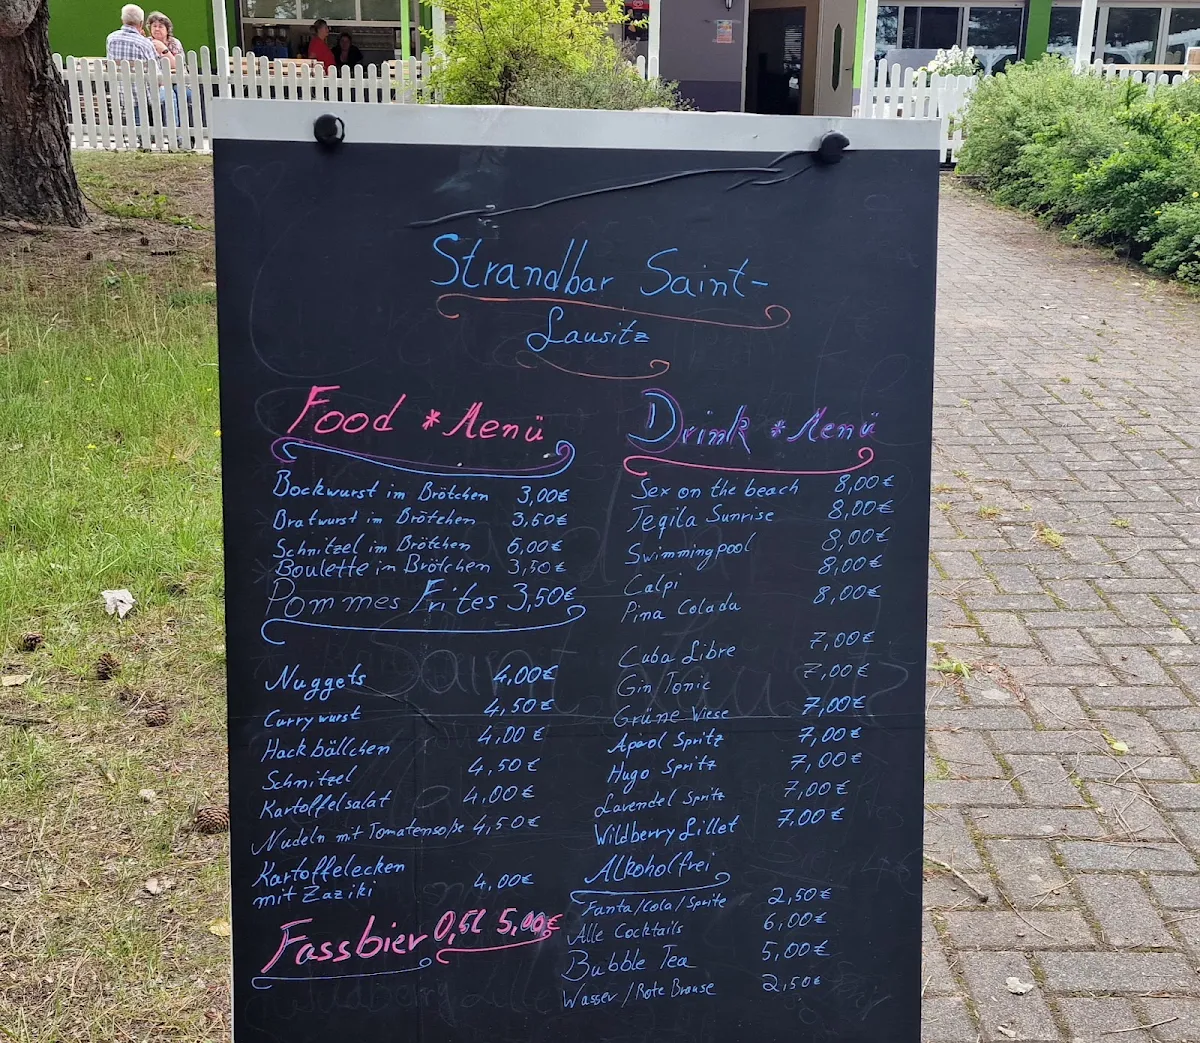 Strandbar Saint-
Lausitz
Food * Menü
Bockwurst im Brötchen 3,00€
Bratwurst im Brötchen 3,50€
Schnitzel im Brötchen 5,00€
Boulette im Brötchen 3,50€
Pommes Frites 3,50€
Nuggets 4,00€
Currywurst 4,50€
Hackbällchen 4,00€
Schnitzel 4,50€
Kartoffelsalat 4,00€
Nudeln mit Tomatensoße 4,50€
Kartoffelecken
mit Zaziki 4,00€
Fassbier 0,5l 5,00€
Drink * Menü
Sex on the beach 8,00€
Teqila Sunrise 8,00€
Swimmingpool 8,00€
Calpi 8,00€
Pina Colada 8,00€
Cuba Libre 7,00€
Gin Tonic 7,00€
Grüne Wiese 7,00€
Aperol Spritz 7,00€
Hugo Spritz 7,00€
Lavendel Spritz 7,00€
Wildberry Lillet 7,00€
Alkoholfrei
Fanta/Cola/Sprite 2,50€
Alle Cocktails 6,00€
Bubble Tea 5,00€
Wasser/Rote Brause 2,50€